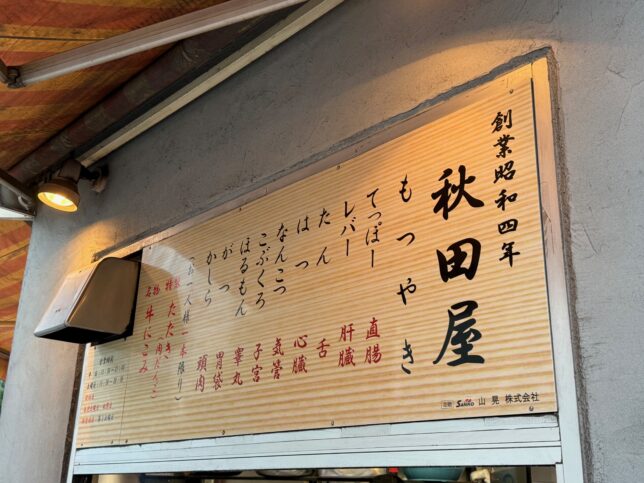 創業昭和四年
秋田屋
もつやき
てっぽー 直腸
レバー 肝臓
たん 舌
はつ 心臓
なんこつ 気管
こぶくろ 子宮
ほるもん 睾丸
がつ 胃袋
かしら 頭肉
(お一人様一本限り)
特製 たたき (肉だんご)
名物 牛にこみ
Sanko 山晃 株式会社